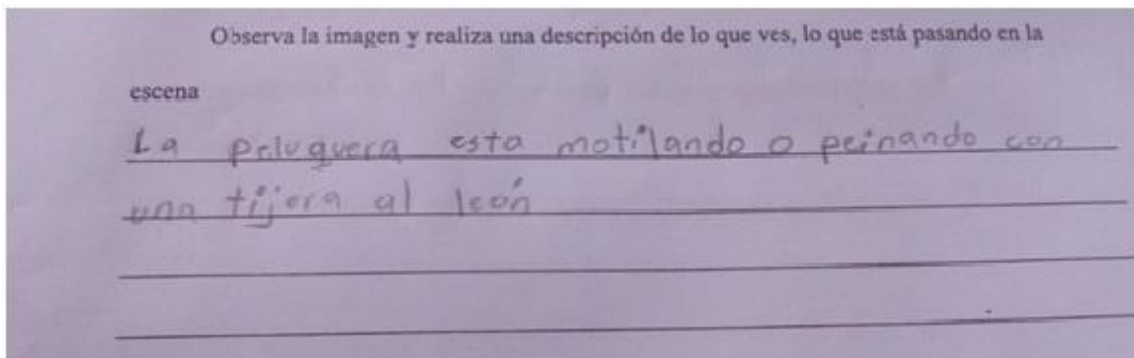 Observa la imagen y realiza una descripción de lo que ves, lo que está pasando en la
escena
La peluguera esta motilando o peinando con
una tijera al león